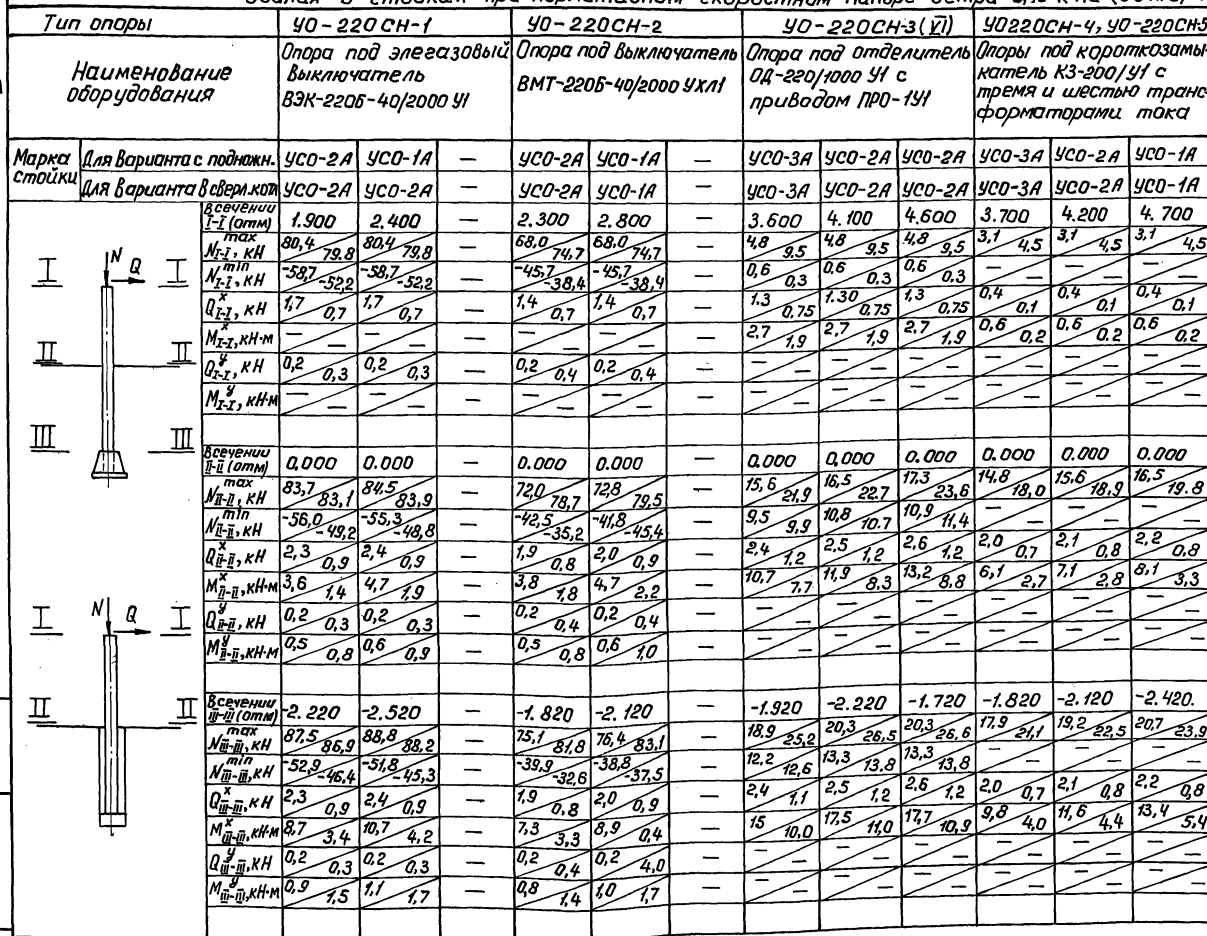 Тип опоры УО-220СН-1 УО-220СН-2 УО-220СН-3(VI) УО220СН-4, УО-220СН-5
Наименование оборудования
Опора под элегазовый выключатель ВЭК-220Б-40/2000 У1
Опора под выключатель ВМТ-220Б-40/2000 УХЛ1
Опора под отделитель ОД-220/1000 У1 с приводом ПРО-1У1
Опоры под короткозамыкатель КЗ-200/У1 с тремя и шестью трансформаторами тока
Марка стойки
Для варианта с подножн. УСО-2А УСО-1А — УСО-2А УСО-1А — УСО-3А УСО-2А УСО-2А УСО-3А УСО-2А УСО-1А
Для варианта в сверл.кот УСО-2А УСО-2А — УСО-2А УСО-1А — УСО-3А УСО-2А УСО-2А УСО-3А УСО-2А УСО-1А
В сечении I-I (отм) 1.900 2.400 — 2.300 2.800 — 3.600 4.100 4.600 3.700 4.200 4.700
N max I-I, кН 80,4/79.8 80,4/79,8 — 68,0/74,7 68,0/74,7 — 4,8/9.5 4,8/9,5 4,8/9,5 3,1/4,5 3,1/4,5 3,1/4,5
N min I-I, кН -58,7/-52,2 -58,7/-52,2 — -45,7/-38,4 -45,7/-38,4 — 0,6/0,3 0,6/0,3 0,6/0,3 —/— —/— —/—
Q x I-I, кН 1,7/0,7 1,7/0,7 — 1,4/0,7 1,4/0,7 — 1.3/0,75 1.30/0.75 1,3/0,75 0,4/0,1 0,4/0,1 0,4/0,1
M x I-I, кН·м —/— —/— — —/— —/— — 2,7/1,9 2,7/1,9 2,7/1,9 0,6/0,2 0,6/0.2 0,6/0,2
Q y I-I, кН 0,2/0,3 0,2/0,3 — 0,2/0,4 0,2/0,4 — —/— —/— —/— —/— —/— —/—
M y I-I, кН·м —/— —/— — —/— —/— — —/— —/— —/— —/— —/— —/—
В сечении II-II (отм) 0.000 0.000 — 0.000 0.000 — 0.000 0,000 0.000 0.000 0.000 0.000
N max II-II, кН 83,7/83,1 84,5/83,9 — 72,0/78,7 72,8/79,5 — 15,6/21,9 16,5/22.7 17,3/23,6 14,8/18,0 15,6/18,9 16,5/19.8
N min II-II, кН -56,0/-49,2 -55,3/-48,8 — -42,5/-35,2 -41,8/-45,4 — 9,5/9,9 10,8/10.7 10,9/11,4 —/— —/— —/—
Q x II-II, кН 2,3/0,9 2,4/0,9 — 1,9/0,8 2,0/0,9 — 2,4/1,2 2,5/1,2 2,6/1,2 2,0/0,7 2,1/0,8 2,2/0,8
M x II-II, кН·м 3,6/1,4 4,7/1,9 — 3,8/1,8 4,7/2,2 — 10,7/7,7 11,9/8,3 13,2/8.8 6,1/2,7 7,1/2,8 8,1/3,3
Q y II-II, кН 0,2/0,3 0,2/0,3 — 0,2/0,4 0,2/0,4 — —/— —/— —/— —/— —/— —/—
M y II-II, кН·м 0,5/0,8 0,6/0,9 — 0,5/0,8 0,6/1,0 — —/— —/— —/— —/— —/— —/—
В сечении III-III (отм) -2.220 -2.520 — -1.820 -2.120 — -1.920 -2.220 -1.720 -1.820 -2.120 -2.420.
N max III-III, кН 87,5/86,9 88,8/88,2 — 75,1/81,8 76,4/83,1 — 18,9/25,2 20,3/26,5 20,3/26,6 17,9/21,1 19,2/22,5 20,7/23,9
N min III-III, кН -52,9/-46,4 -51,8/-45,3 — -39,9/-32,6 -38,8/-37,5 — 12,2/12,6 13,3/13.8 13,3/13,8 —/— —/— —/—
Q x III-III, кН 2,3/0,9 2,4/0,9 — 1,9/0,8 2,0/0,9 — 2,4/1,1 2,5/1,2 2,6/1,2 2,0/0,7 2,1/0,8 2,2/0,8
M x III-III, кН·м 8,7/3,4 10,7/4,2 — 7,3/3,3 8,9/0,4 — 15/10,0 17,5/11,0 17,7/10,9 9,8/4,0 11,6/4,4 13,4/5,4
Q y III-III, кН 0,2/0,3 0,2/0,3 — 0,2/0,4 0,2/4,0 — —/— —/— —/— —/— —/— —/—
M y III-III, кН·м 0,9/1,5 1,1/1,7 — 0,8/1,4 1,0/1,7 — —/— —/— —/— —/— —/— —/—
N
I Q I
II II
III III
N
I Q I
II II